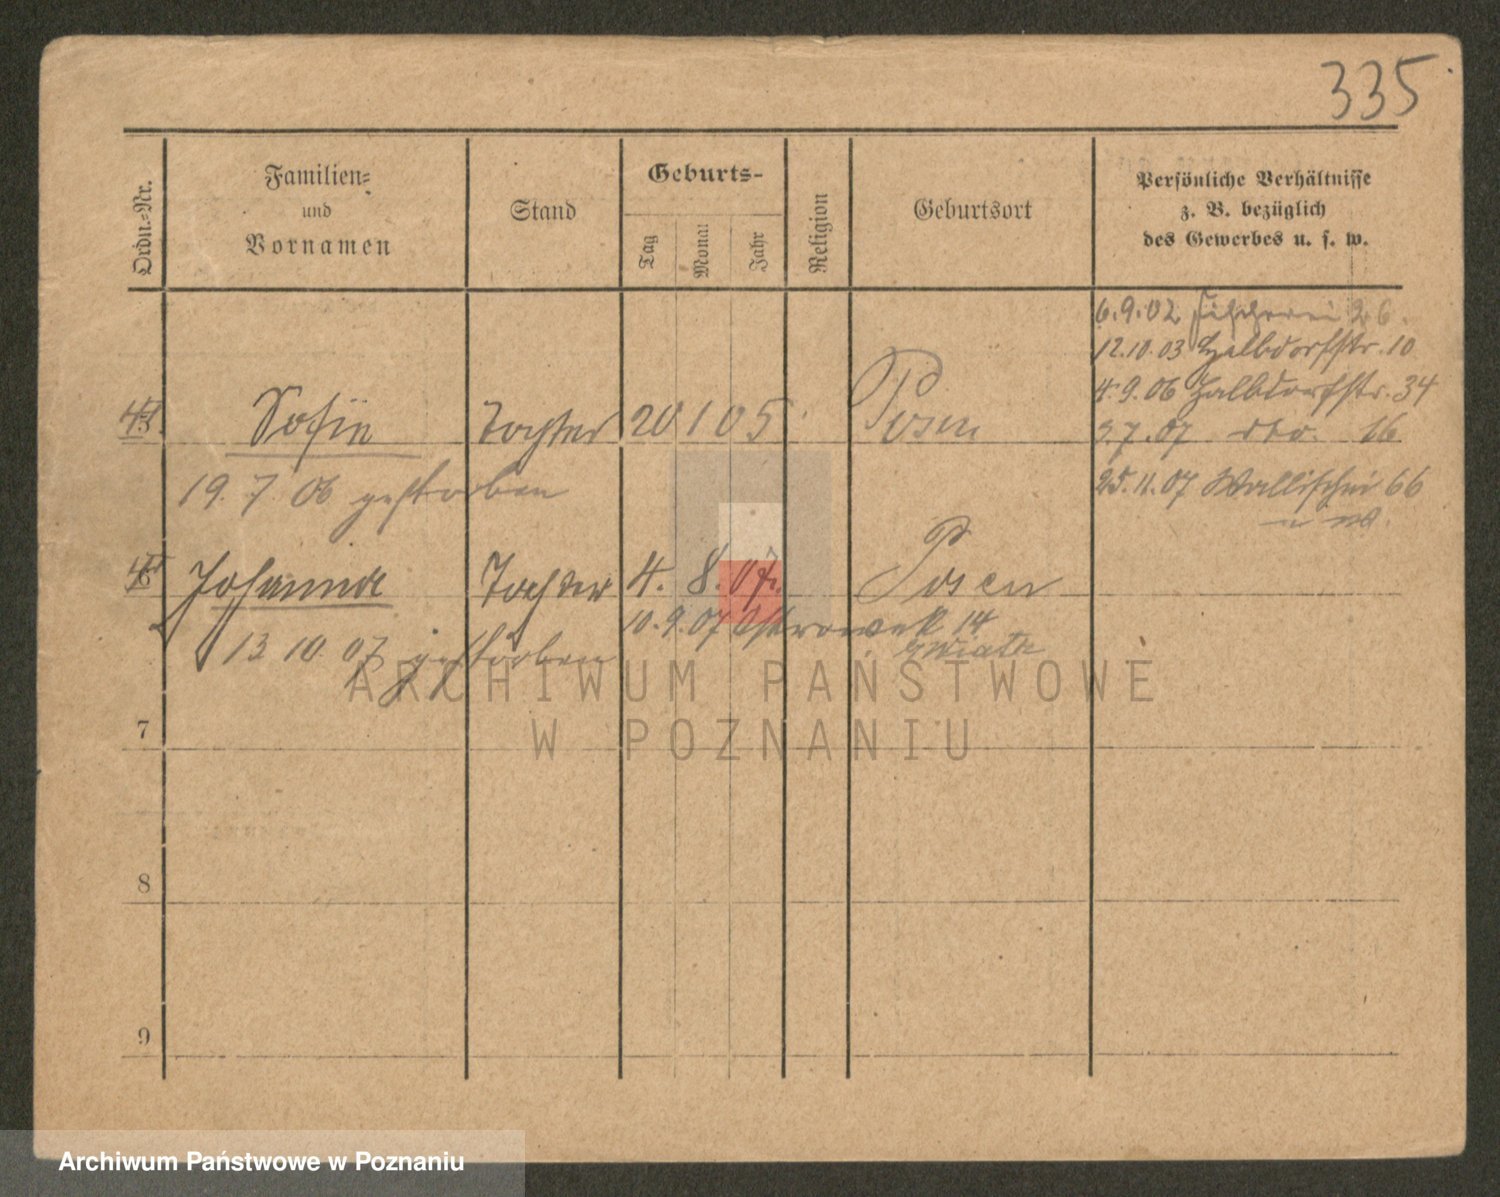 335
Ordn.-Nr.
Familien-
und
Vornamen
Stand
Geburts-
Tag
Monat
Jahr
Religion
Geburtsort
Persönliche Verhältnisse
z. B. bezüglich
des Gewerbes u. s. w.
6.9.02 Fischerei 26.
12.10.03 Halbdorfstr. 10
4.9.06 Halbdorfstr. 34
3.7.07 dto. 16
25.11.07 Wallischei 66
Sofie Tochter 20 1 05 Posen
19. 7. 06 gestorben
Johanna Tochter 4. 8. 07. Posen
10.9.07 Ostrowek 14
13 10 07 gestorben
7
8
9
ARCHIWUM PAŃSTWOWE
W POZNANIU
Archiwum Państwowe w Poznaniu